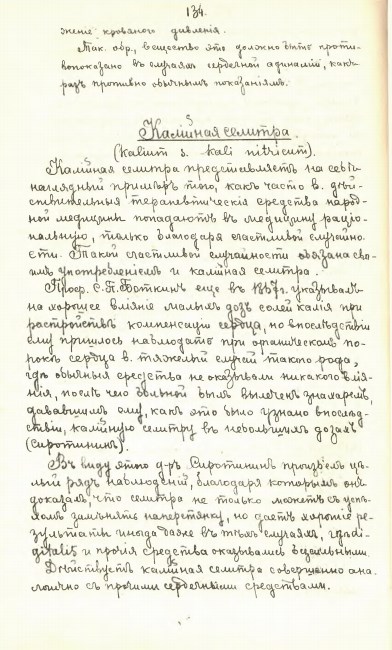 134.
женіе кровяного давленія.
Так. обр., вещество это должно быть проти-
вопоказано въ случаяхъ сердечной адинаміи, какъ
разъ противно обычнымъ показаніямъ.
Калійная селитра.
(Kalium s. kali nitricum).
Калійная селитра представляетъ на себѣ
наглядный примѣръ того, какъ часто в. дѣй-
ствительныя терапевтическія средства народ-
ной медицины попадаютъ въ медицину раціо-
нальную, только благодаря счастливой случайно-
сти. Такой счастливой случайности обязана сво-
имъ употребленіемъ и калійная селитра.
Проф. С. П. Боткинъ еще въ указывалъ
на хорошее вліяніе малыхъ дозъ солей калія при
разстройствѣ компенсаціи сердца, но впослѣдствіи
ему пришлось наблюдать при органическомъ по-
рокѣ сердца в. тяжелый случай такого рода,
гдѣ обычныя средства не оказывали никакого влія-
нія, послѣ чего больной былъ вылеченъ знахаремъ,
дававшимъ ему, какъ это было узнано впослѣд-
ствіи, калійную селитру въ небольшихъ дозахъ
(Сиротининъ).
Въ виду этого д-ръ Сиротининъ произвелъ цѣ-
лый рядъ наблюденій, благодаря которымъ онъ
доказалъ, что селитра не только можетъ съ успѣ-
хомъ замѣнять наперстянку, но даетъ хорошіе ре-
зультаты иногда даже въ тѣхъ случаяхъ, гдѣ di-
gitalis и прочія средства оказывались безсильными.
Дѣйствуетъ калійная селитра совершенно ана-
логично съ прочими сердечными средствами.